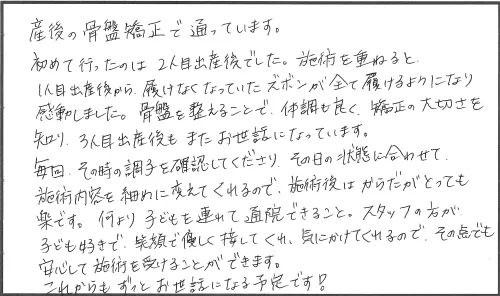 産後の骨盤矯正で通っています。
初めて行ったのは2人目出産後でした。施術を重ねると
1人目出産後から、履けなくなっていたズボンが全て履けるようになり
感動しました。骨盤を整えることで、体調も良く、矯正の大切さを
知り、3人目出産後もまたお世話になっています。
毎回、その時の調子を確認してくださり、その日の状態に合わせて、
施術内容を細めに変えてくれるので、施術後はからだがとっても
楽です。何より子どもを連れて通院できること。スタッフの方が
子ども好きで、笑顔で優しく接してくれ、気にかけてくれるので、その点でも
安心して施術を受けることができます。
これからもずっとお世話になる予定です!